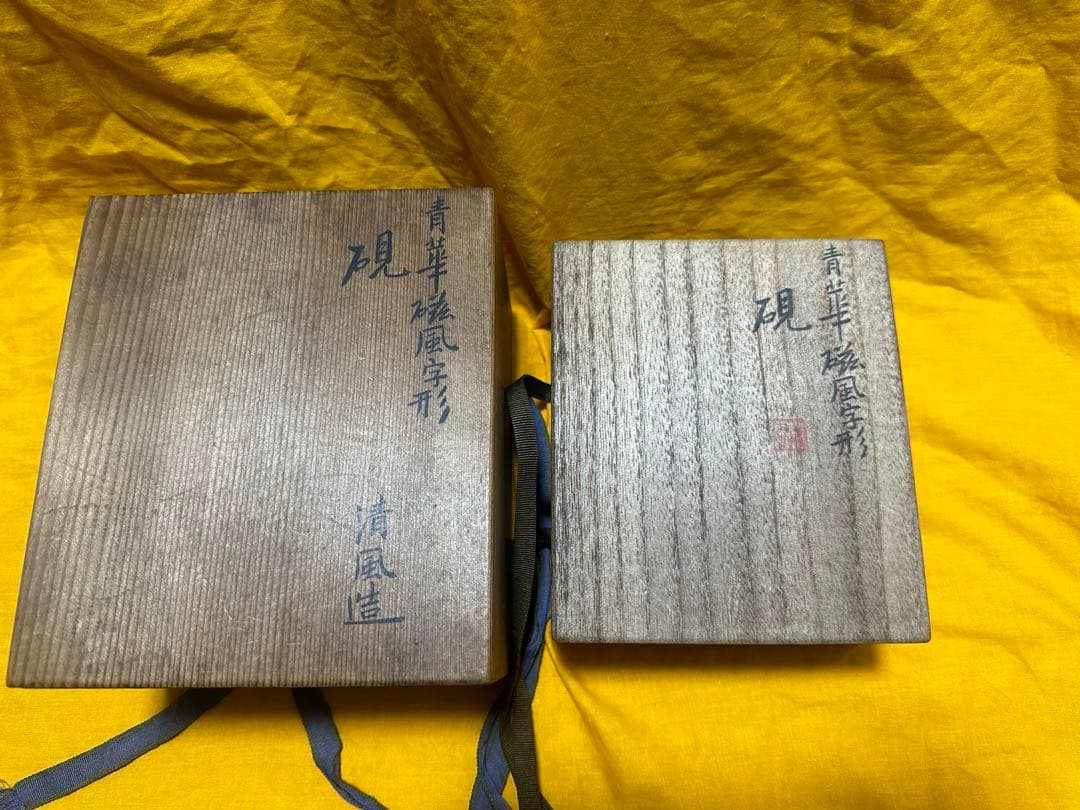 青華磁風字形
硯
清風造
青華磁風字形
硯